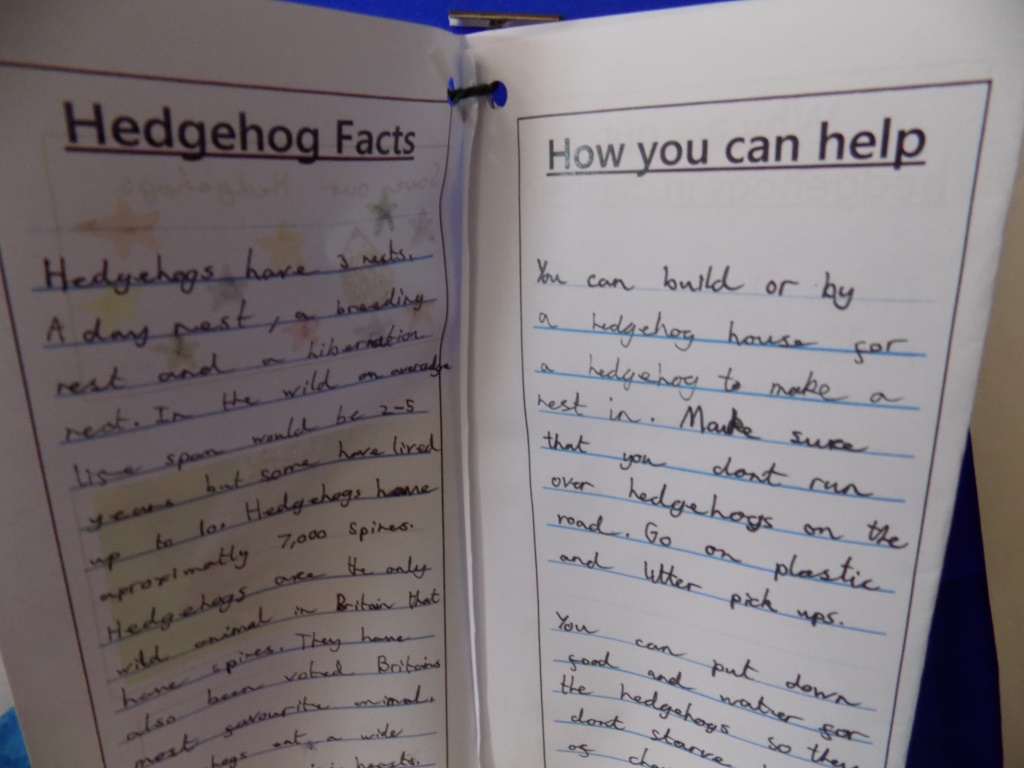 Hedgehog Facts
Hedgehogs have 3 nests.
A day nest, a breeding
nest and a hibernation
nest. In the wild an averadge
life span would be 2-5
years but some have lived
up to 10. Hedgehogs have
aproximatly 7,000 spines.
Hedgehogs are the only
wild animal in Britain that
have spines. They have
also been voted Britains
most favourite animal.
hogs eat a wide
How you can help
You can build or by
a hedgehog house for
a hedgehog to make a
nest in. Make sure
that you dont run
over hedgehogs on the
road. Go on plastic
and litter pick ups.
You can put down
food and water for
the hedgehogs so they
dont starve
of